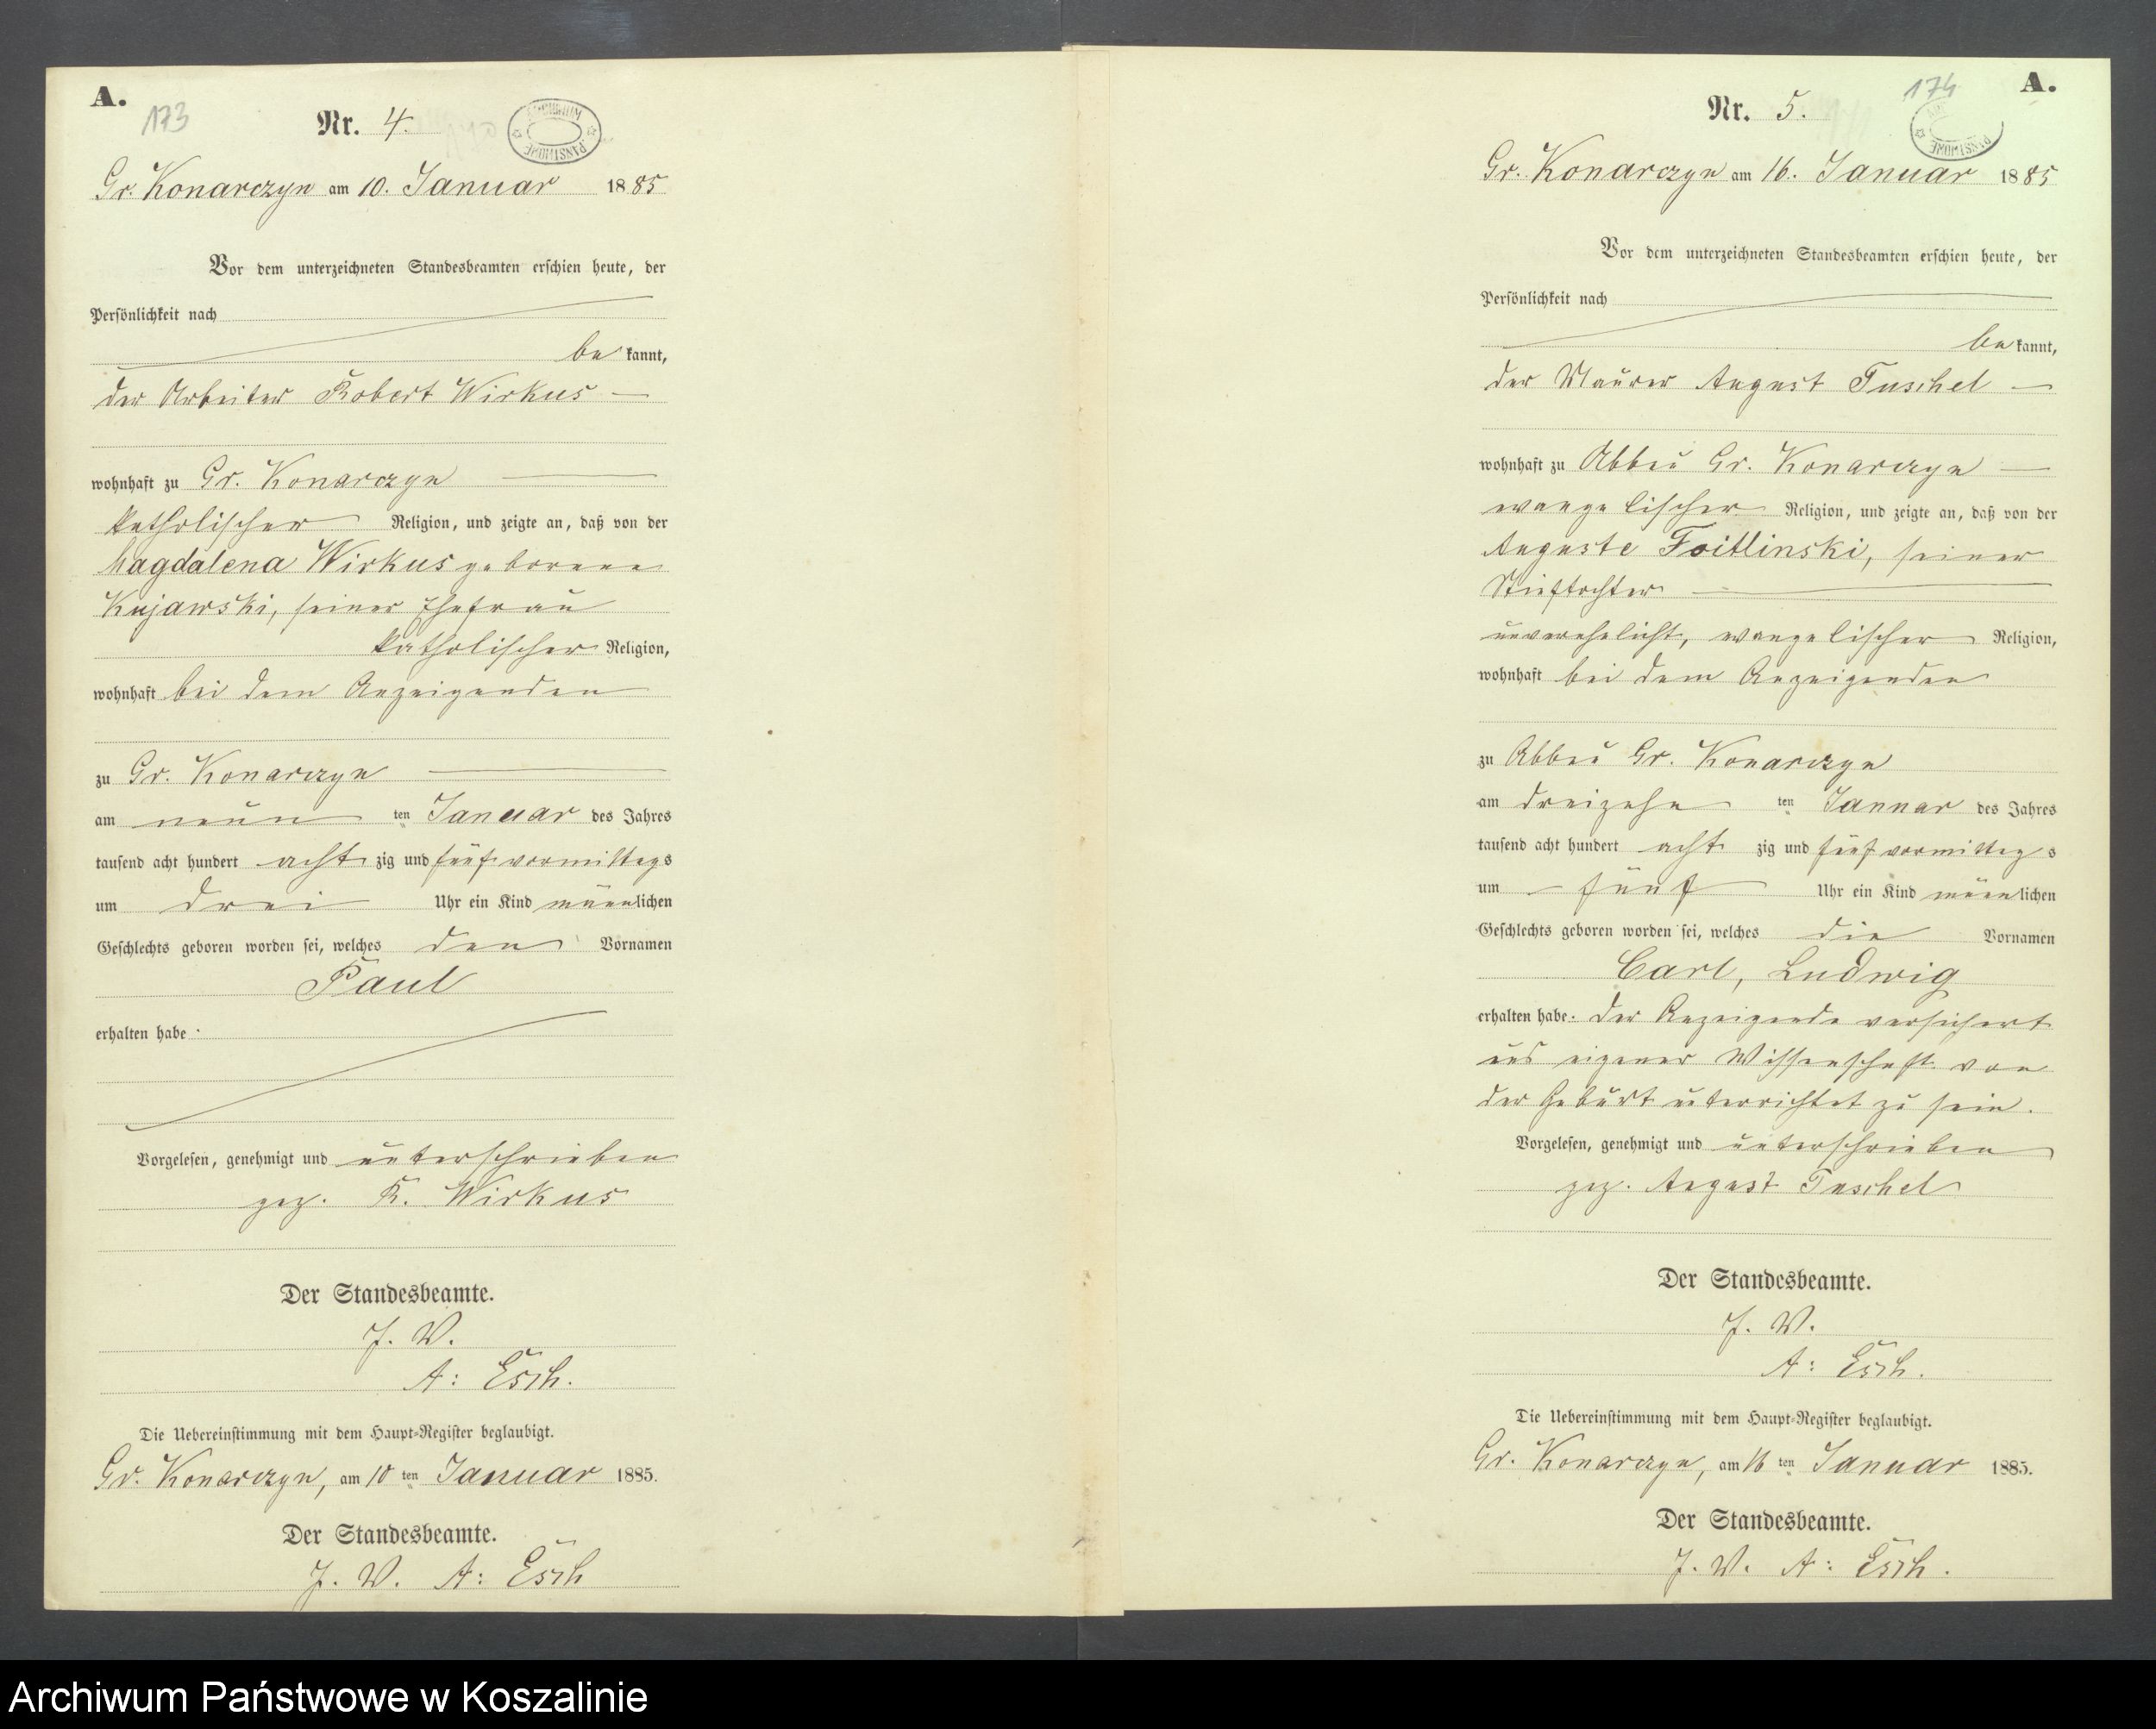 A.
173
Nr. 4.
ARCHIWUM PAŃSTWOWE
Gr. Konarczyn am 10. Januar 1885
Vor dem unterzeichneten Standesbeamten erschien heute, der
Persönlichkeit nach
bekannt,
der Arbeiter Robert Wirkus —
wohnhaft zu Gr. Konarczyn —
katholischer Religion, und zeigte an, daß von der
Magdalena Wirkus geborene
Kujawski, seiner Ehefrau
katholischer Religion,
wohnhaft bei dem Anzeigenden
zu Gr. Konarczyn —
am neun ten Januar des Jahres
tausend acht hundert acht zig und fünf vormittags
um drei Uhr ein Kind männlichen
Geschlechts geboren worden sei, welches den Vornamen
Paul
erhalten habe.
Vorgelesen, genehmigt und unterschrieben
gez. R. Wirkus
Der Standesbeamte.
J. V.
A: Esch.
Die Uebereinstimmung mit dem Haupt-Register beglaubigt.
Gr. Konarczyn, am 10 ten Januar 1885.
Der Standesbeamte.
J. V. A: Esch
174
A.
Nr. 5.
Gr. Konarczyn am 16. Januar 1885
Vor dem unterzeichneten Standesbeamten erschien heute, der
Persönlichkeit nach
bekannt,
der Maurer August Tuschel —
wohnhaft zu Abbau Gr. Konarczyn —
evangelischer Religion, und zeigte an, daß von der
Auguste Foitlinski, seiner
Stieftochter —
unverehelicht, evangelischer Religion,
wohnhaft bei dem Anzeigenden
zu Abbau Gr. Konarczyn
am dreizehn ten Januar des Jahres
tausend acht hundert acht zig und fünf vormittags
um — fünf Uhr ein Kind männlichen
Geschlechts geboren worden sei, welches die Vornamen
Carl, Ludwig
erhalten habe. Der Anzeigende versichert
aus eigener Wissenschaft von
der Geburt unterrichtet zu sein.
Vorgelesen, genehmigt und unterschrieben
gez. August Tuschel
Der Standesbeamte.
J. V.
A: Esch.
Die Uebereinstimmung mit dem Haupt-Register beglaubigt.
Gr. Konarczyn, am 16 ten Januar 1885.
Der Standesbeamte.
J. V. A: Esch.
Archiwum Państwowe w Koszalinie